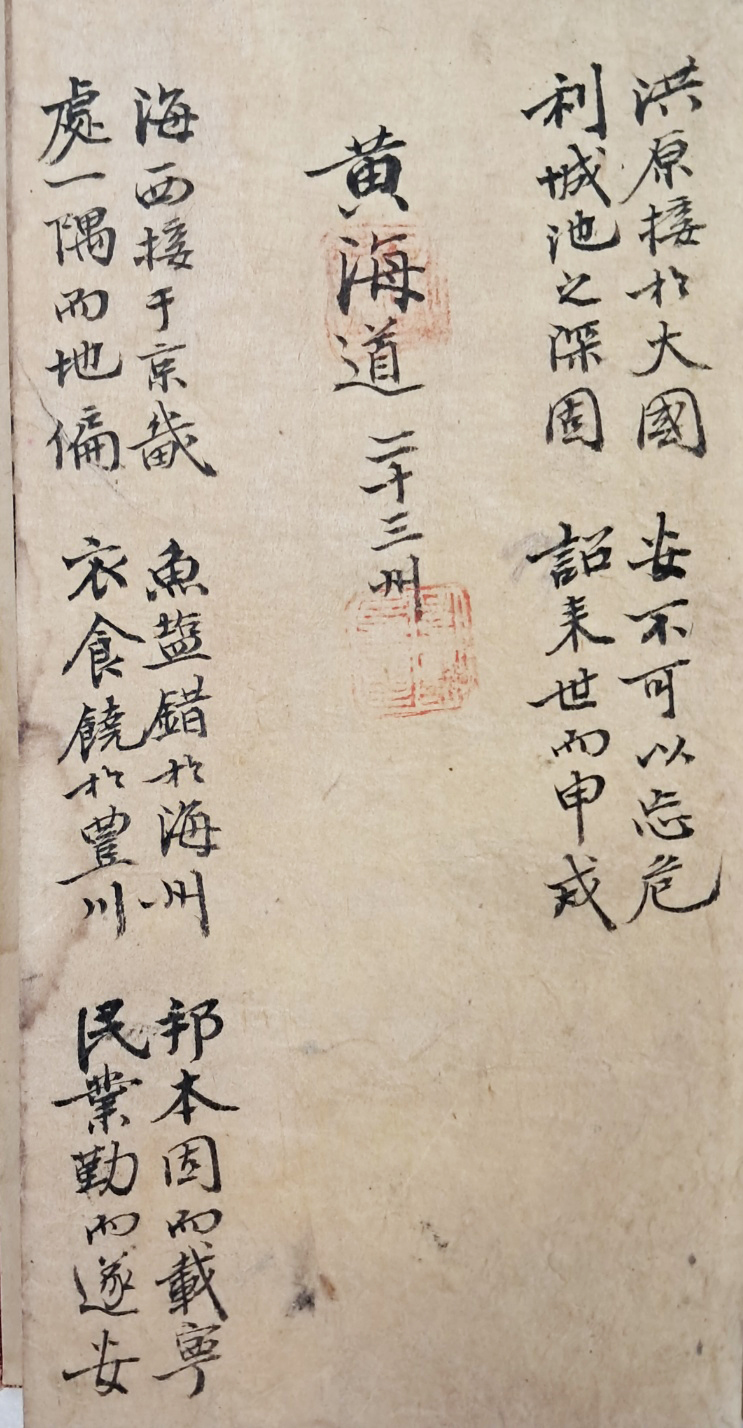 洪原接於大國　安不可以忘危
利城池之深固　詔来世而申戒
黄海道 二十三州
海西接于京畿　魚塩錯於海州　邦本固而載寧
處一隅而地偏　衣食饒於豊川　民業勤而遂安